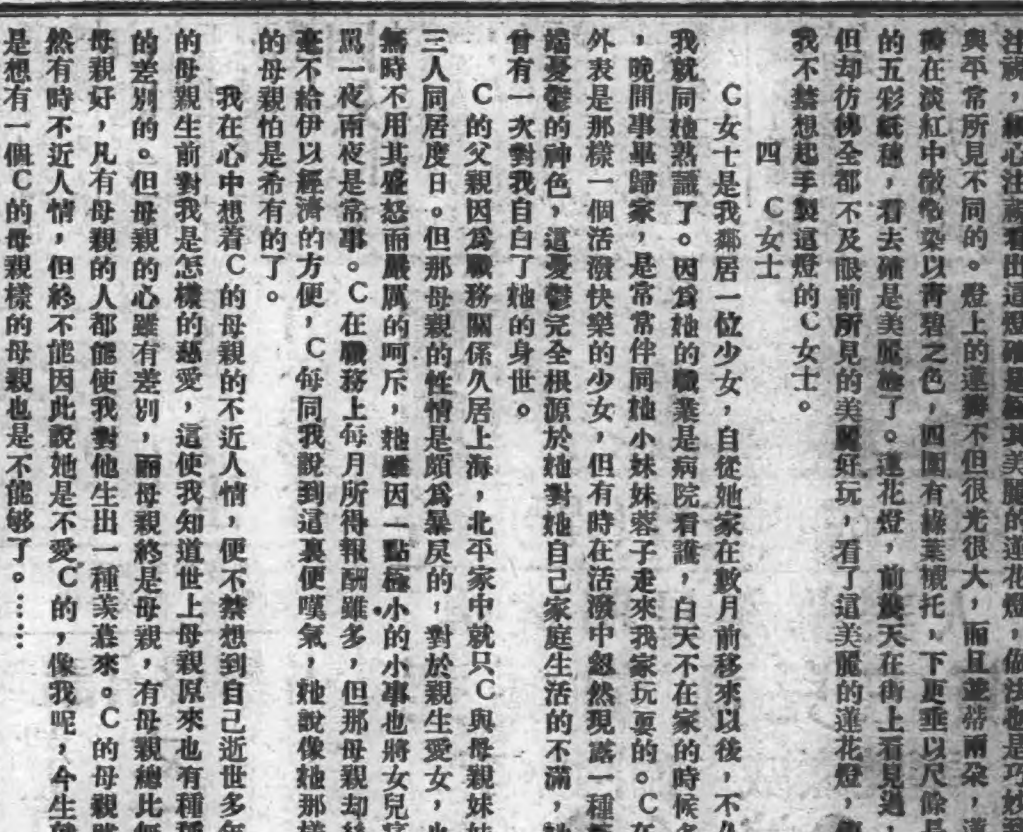 注視,細心注視看出這燈確是極其美麗的蓮花燈,做法也是巧妙
與平常所見不同的。燈上的蓮瓣不但很光很大,而且並蒂兩朶,
瓣在淡紅中微微染以靑碧之色,四圍有綠葉襯托,下更垂以尺餘長
的五彩紙穗,看去確是美麗極了。蓮花燈,前幾天在街上看見過
但却彷彿全都不及眼前所見的美麗好玩,看了這美麗的蓮花燈,
我不禁想起手製這燈的C女士。
四 C女士
C女士是我鄰居一位少女,自從她家在數月前移來以後,不久
我就同她熟識了。因爲她的職業是病院看護,白天不在家的時候多
,晚間事畢歸家,是常常伴同她小妹妹蓉子走來我家玩耍的。C在
外表是那樣一個活潑快樂的少女,但有時在活潑中忽然現露一種
端憂鬱的神色,這憂鬱完全根源於她對她自己家庭生活的不滿,她
曾有一次對我自白了她的身世。
C的父親因爲職務關係久居上海,北平家中就只C與母親妹妹
三人同居度日。但那母親的性情是頗爲暴戾的,對於親生愛女,也
無時不用其盛怒而嚴厲的呵斥,她雖因一點極小的小事也將女兒痛
罵一夜兩夜是常事。C在職務上每月所得報酬雖多,但那母親却絲
毫不給伊以經濟的方便,C每同我說到這裏便嘆氣,她說像她那樣
的母親怕是希有的了。
我在心中想着C的母親的不近人情,便不禁想到自己逝世多年
的母親生前對我是怎樣的慈愛,這使我知道世上母親原來也有種種
的差別的。但母親的心雖有差別,而母親終是母親,有母親總比無
母親好,凡有母親的人都能使我對他生出一種羨慕來。C的母親雖
然有時不近人情,但終不能因此說她是不愛C的,像我呢,今生
是想有一個C的母親樣的母親也是不能够了。……